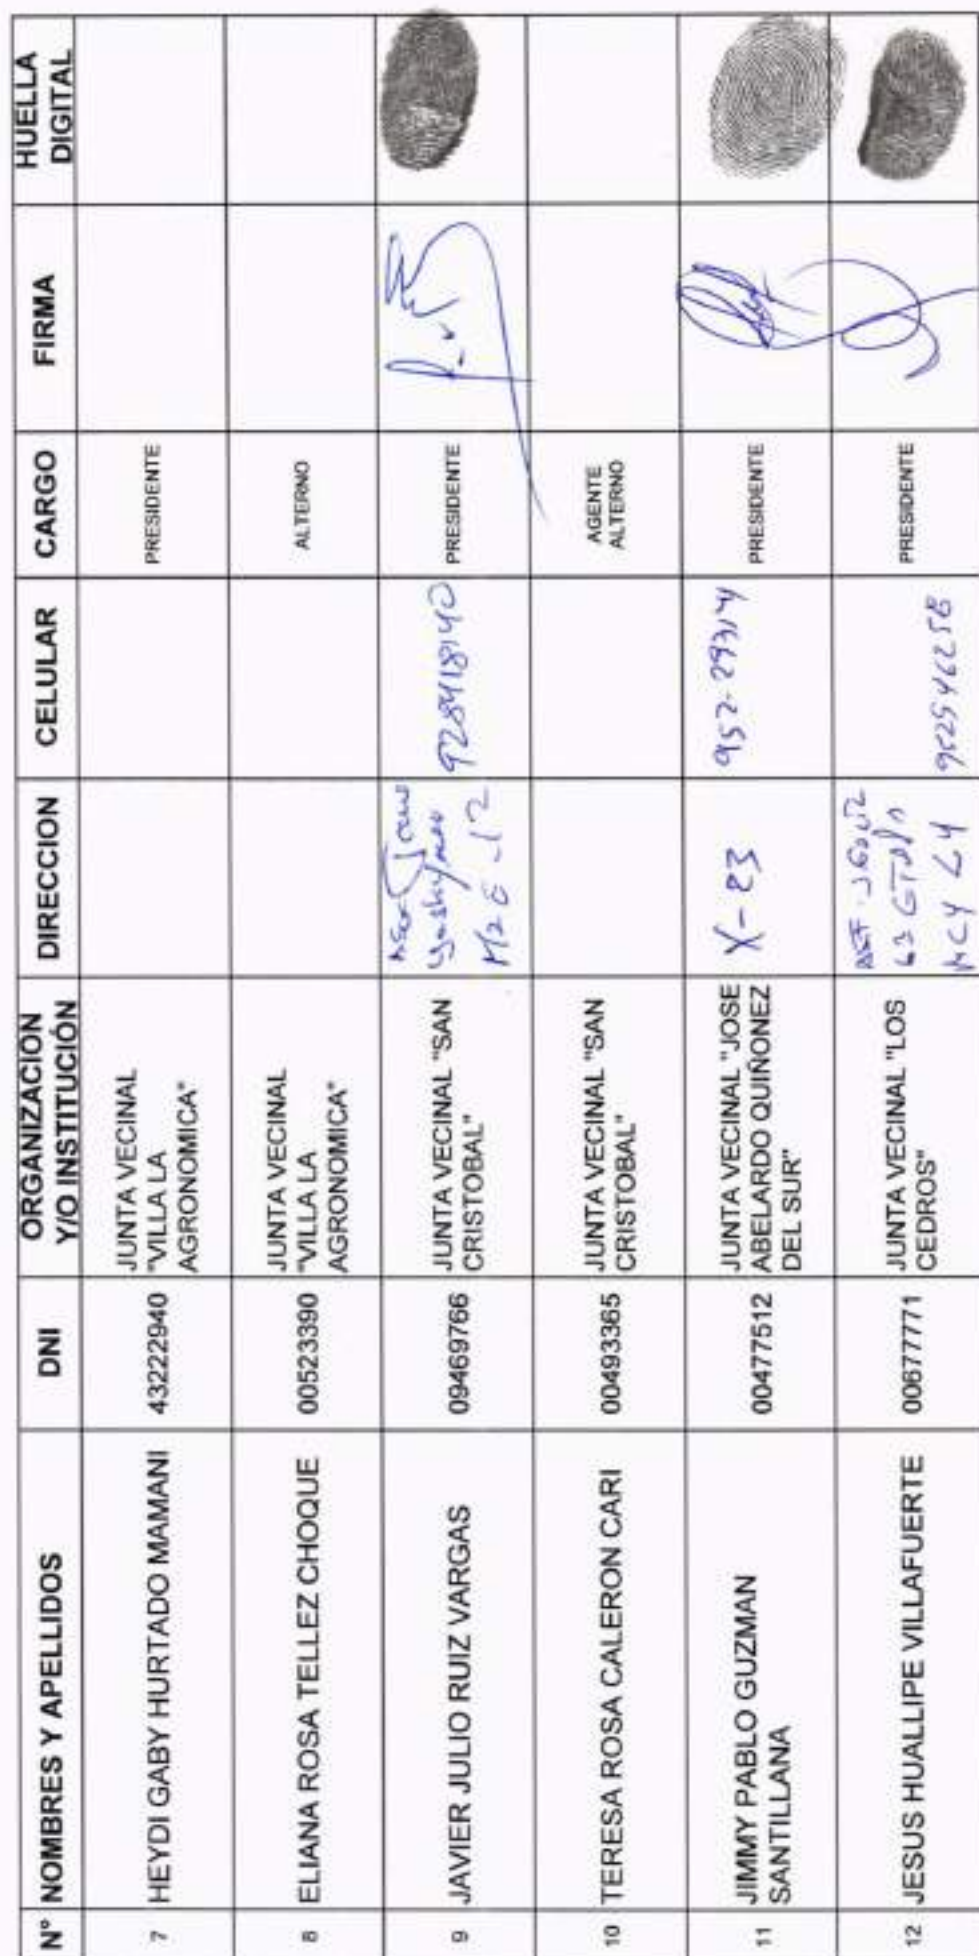 N° NOMBRES Y APELLIDOS DNI ORGANIZACION Y/O INSTITUCIÓN DIRECCION CELULAR CARGO FIRMA HUELLA DIGITAL
7 HEYDI GABY HURTADO MAMANI 43222940 JUNTA VECINAL "VILLA LA AGRONOMICA" PRESIDENTE
8 ELIANA ROSA TELLEZ CHOQUE 00523390 JUNTA VECINAL "VILLA LA AGRONOMICA" ALTERNO
9 JAVIER JULIO RUIZ VARGAS 09469766 JUNTA VECINAL "SAN CRISTOBAL" 928418140 PRESIDENTE
10 TERESA ROSA CALERON CARI 00493365 JUNTA VECINAL "SAN CRISTOBAL" AGENTE ALTERNO
11 JIMMY PABLO GUZMAN SANTILLANA 00477512 JUNTA VECINAL "JOSE ABELARDO QUIÑONEZ DEL SUR" X-23 PRESIDENTE
12 JESUS HUALLIPE VILLAFUERTE 00677771 JUNTA VECINAL "LOS CEDROS" PRESIDENTE